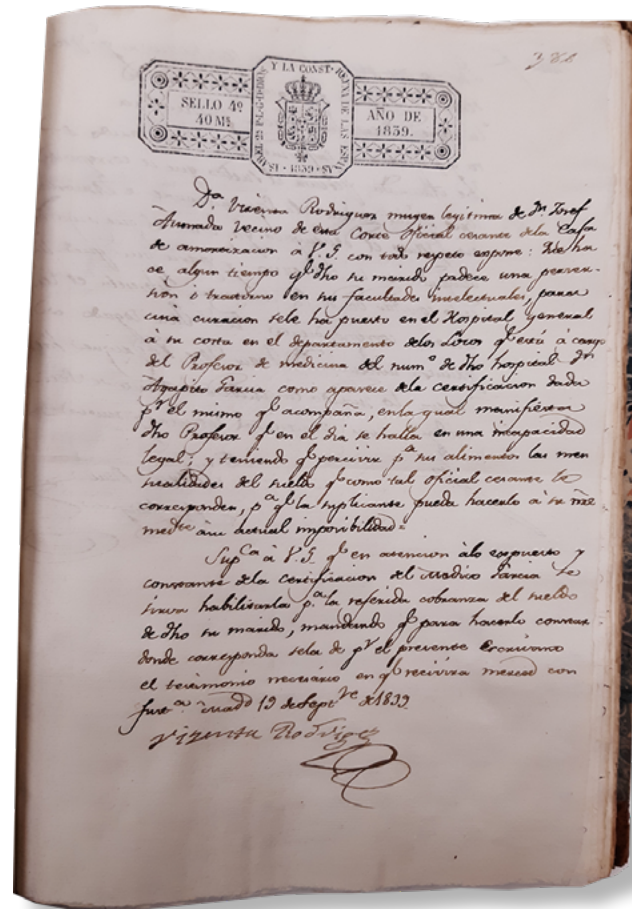 SELLO 4º
40 MS.
ISABEL 2ª P. L. G. D DIOS Y LA CONST. REYNA DE LAS ESPAÑAS
1839
AÑO DE
1839.
Dª Vicenta Rodriguez muger legitima de Dn. Josef
Ahumada vecino de esta Corte Oficial cesante dela Casa
de amortizacion à V.S. con todo respeto expone: Que ha
ce algun tiempo qe dho su marido padece una perver-
sion ò trastorno en sus facultades intelectuales, para
cuia curacion sele ha puesto en el Hospital general
à su costa en el departamento delos Locos qe está à cargo
del Profesor de medicina del numº de dho hospital Dn
Agapito Garcia como aparece dela certificacion dada
pr el mismo qe acompaña, enla qual manifiesta
dho Profesor qe en el dia se halla en una incapacidad
legal; y teniendo qe percivir pª su alimentos las men
sualidades del sueldo qe como tal oficial cesante le
corresponden, pª qe la suplicante pueda hacerlo à su nre
medte àsu actual imposibilidad=
Supca à V.S. qe en atencion àlo expuesto y
constante dela certificacion del Medico Garcia se
sirva habilitarla pª la referida cobranza del sueldo
de dho su marido, mandando qe para hacerlo constar
donde corresponda sela de pr el presente Escribano
el testimonio necesario en qe recivira merced con
Justª Madd 19 de Septre de 1839
Vizenta Rodrigez